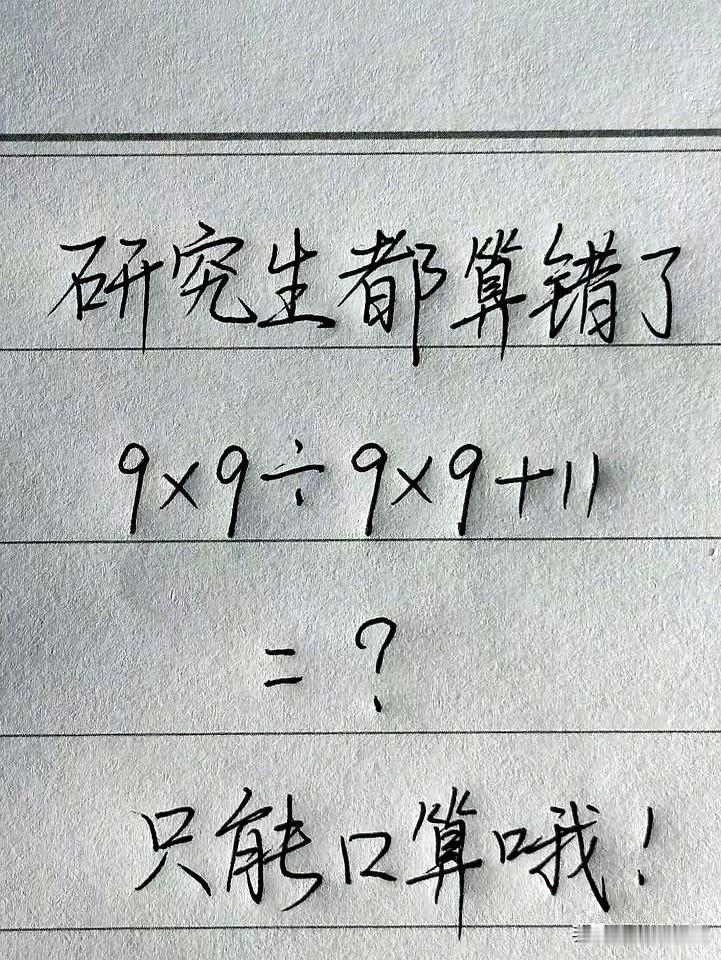 研究生都算错了
9×9÷9×9+11
=?
只能口算哦!